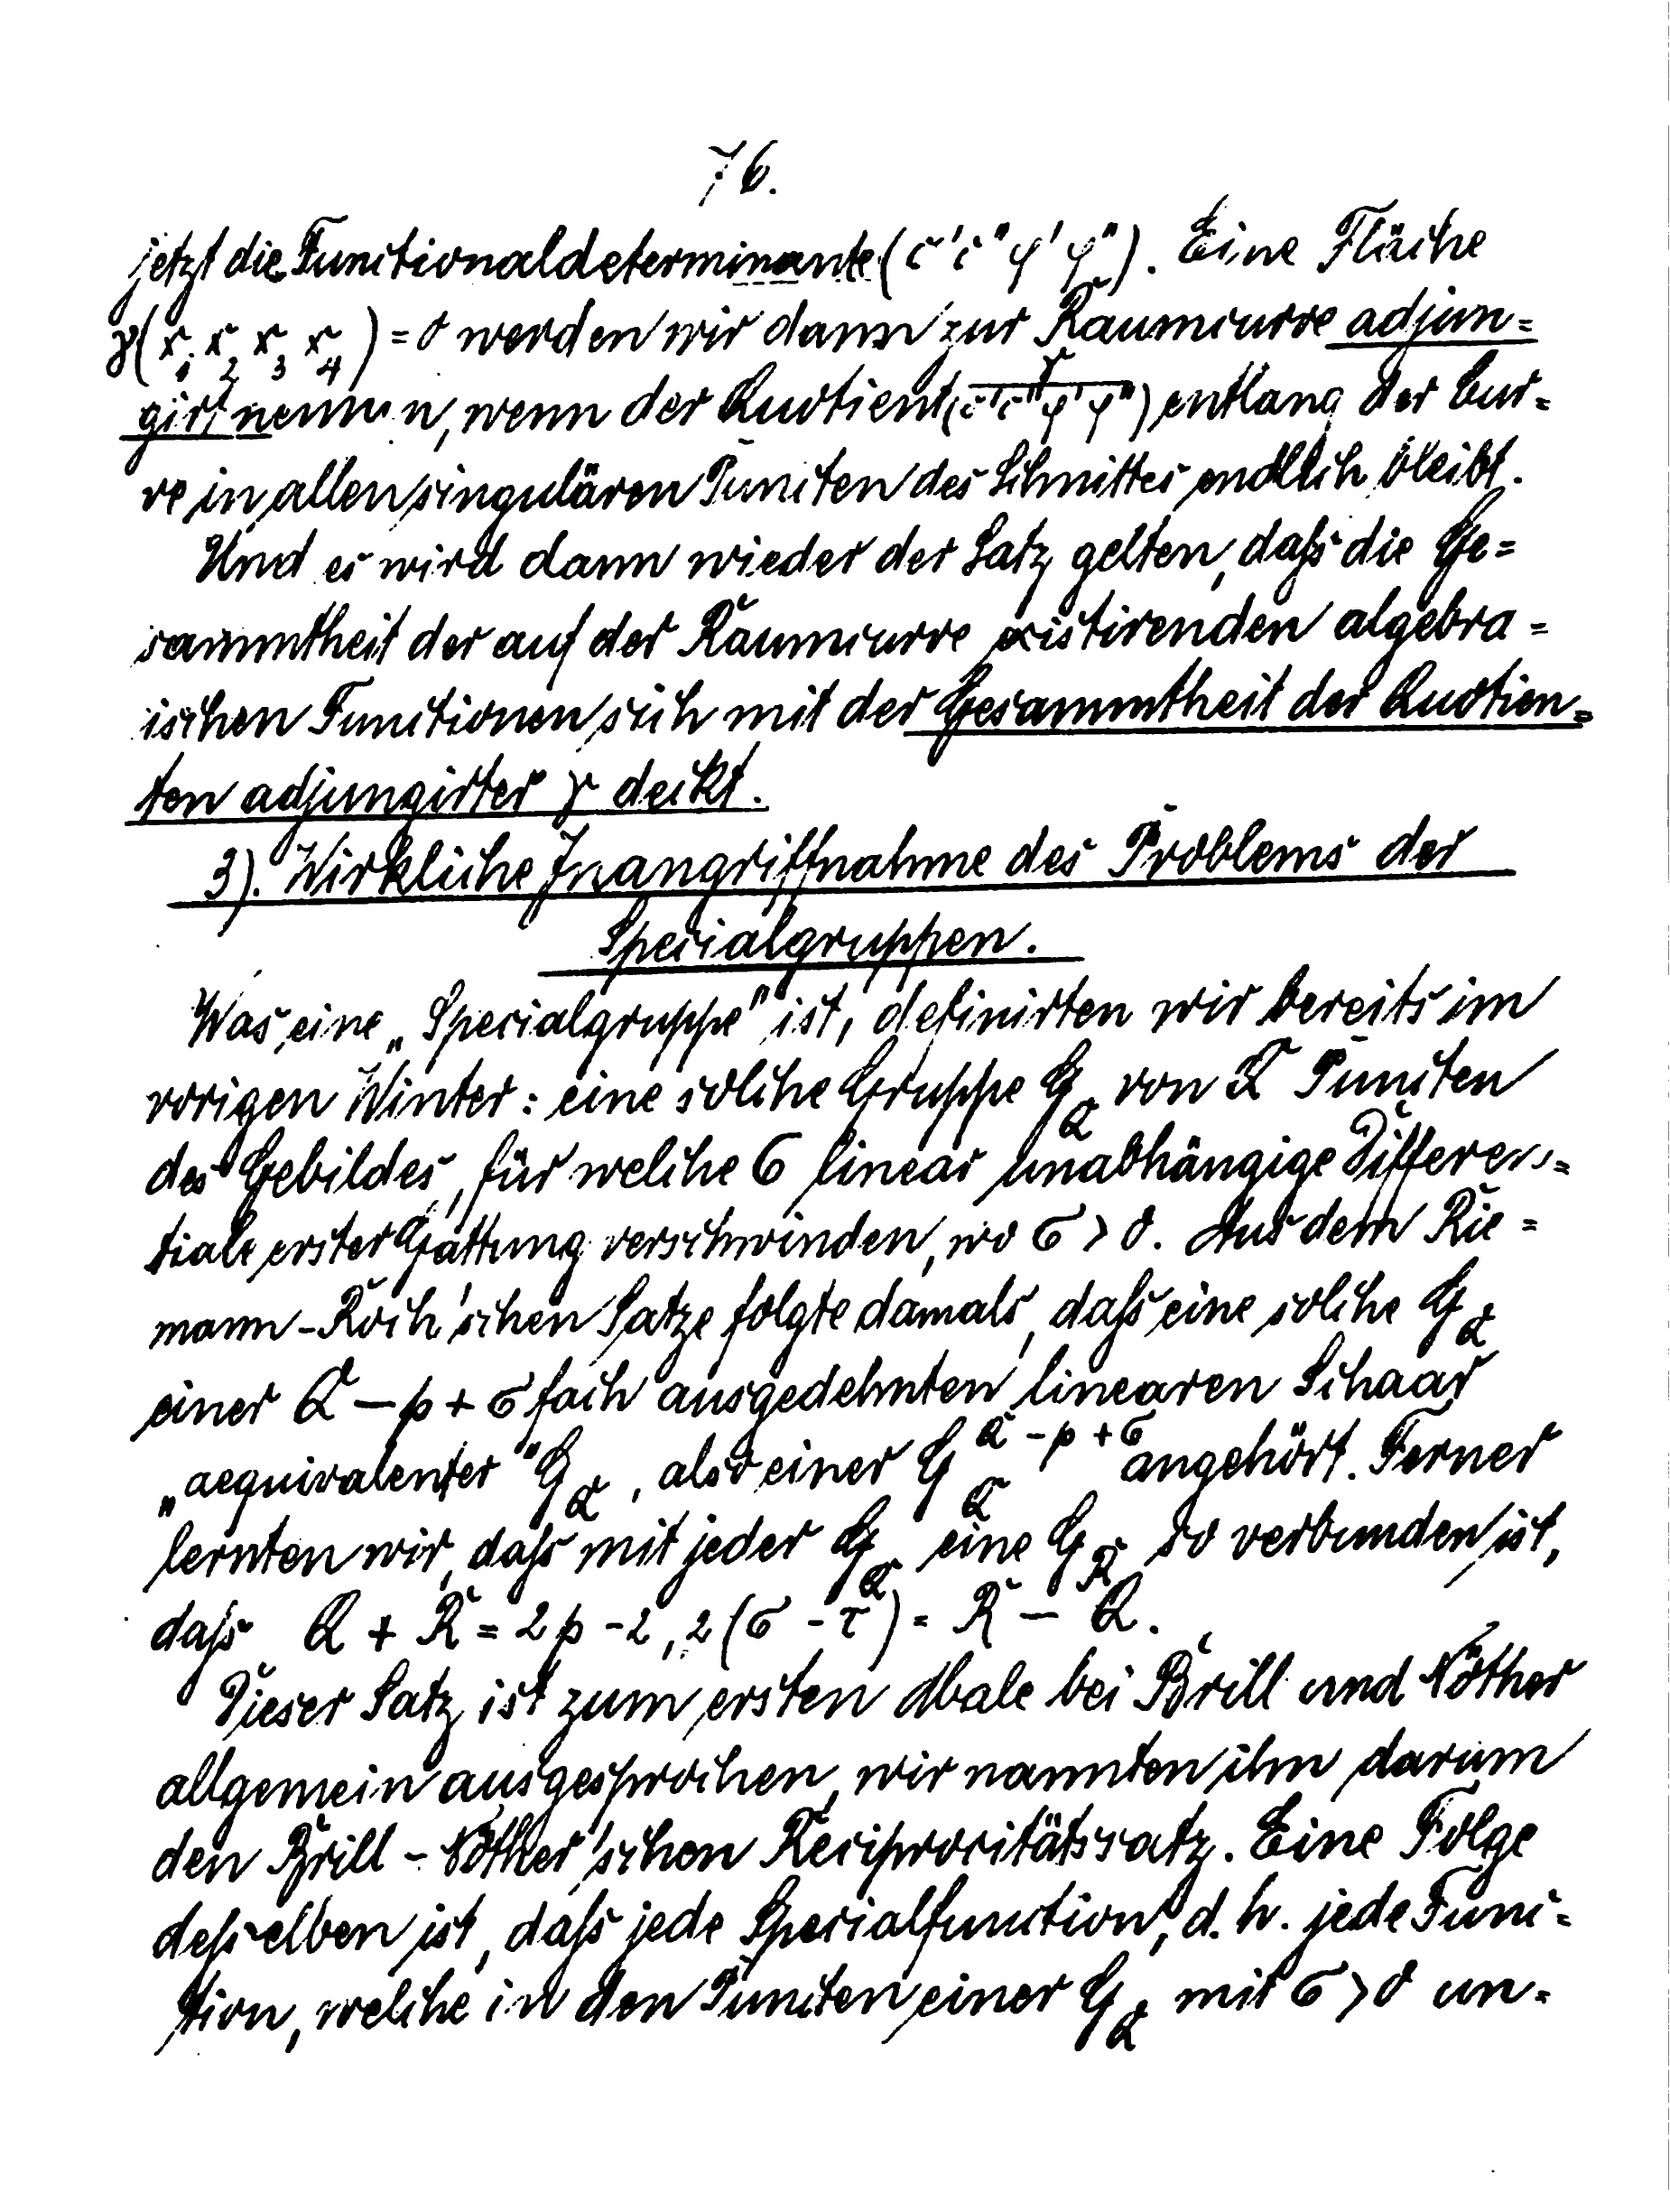 76.
jetzt die Functionaldeterminante (c' c'' φ' φ''). Eine Fläche
γ(x₁ x₂ x₃ x₄) = 0 werden wir dann zur Raumcurve adjun=
girt nennen, wenn der Quotient γ/(c' c'' φ' φ'') entlang der Cur=
ve in allen singulären Puncten des Schnittes endlich bleibt.
Und es wird dann wieder der Satz gelten, daſs die Ge=
sammtheit der auf der Raumcurve existirenden algebra=
ischen Functionen sich mit der Gesammtheit der Quotien=
ten adjungirter γ deckt.
3). Wirkliche Inangriffnahme des Problems der
Specialgruppen.
Was eine „Specialgruppe" ist, definirten wir bereits im
vorigen Winter: eine solche Gruppe G_Q von Q Puncten
des Gebildes, für welche σ linear unabhängige Differen=
tiale erster Gattung verschwinden, wo σ > 0. Aus dem Rie=
mann-Roch'schen Satze folgte damals, daſs eine solche G_Q
einer Q − p + σ fach ausgedehnten linearen Schaar
„aequivalenter" G_Q, also einer G_Q^{Q − p + σ} angehört. Ferner
lernten wir, daſs mit jeder G_Q eine G_R so verbunden ist,
daſs Q + R = 2p − 2, 2(σ − τ) = R − Q.
Dieser Satz ist zum ersten Male bei Brill und Nöther
allgemein ausgesprochen, wir nannten ihn darum
den Brill-Nöther'schen Reciprocitätssatz. Eine Folge
deſselben ist, daſs jede Specialfunction, d. h. jede Func=
tion, welche in den Puncten einer G_Q mit σ > 0 un=